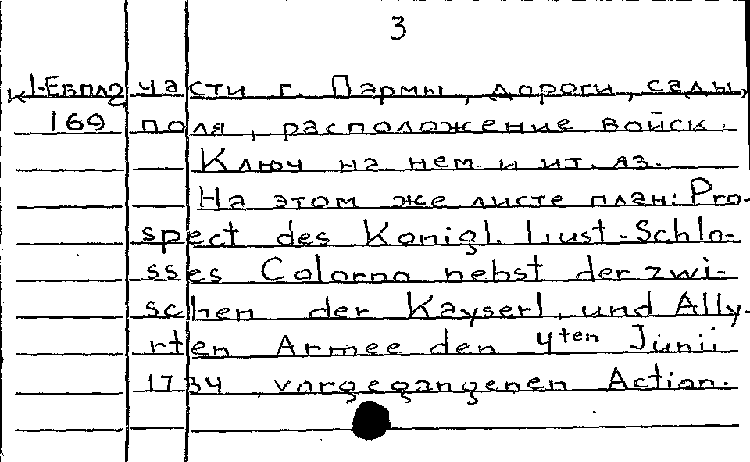 3
К1-Евпл2 части г. Пармы, дороги, сады,
169 поля, расположение войск.
Ключ на нем. и ит. яз.
На этом же листе план: Pro-
spect des Konigl. Lust-Schlo-
sses Colorno nebst der zwi-
schen der Kayserl. und Ally-
rten Armee den 4ten Junii
1734 vorgegangenen Action.